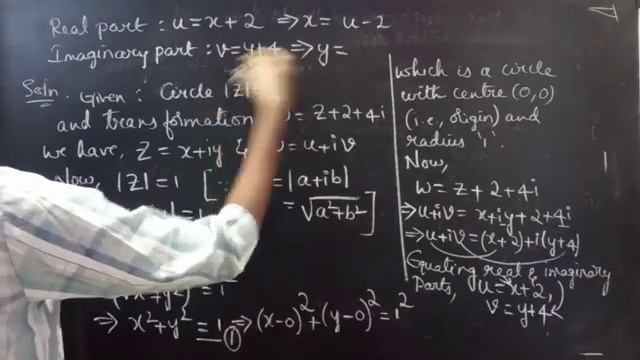 Real part : u = x + 2 ⇒ x = u - 2
Imaginary part : v = y + 4 ⇒ y =
Soln. Given : Circle |z| =
and transformation = z + 2 + 4i
we have, z = x + iy & = u + iv
Now, |z| = 1 [ = |a + ib|
= 1 = √a² + b² ]
(x² + y²) = 1
⇒ x² + y² = 1 ① ⇒ (x - 0)² + (y - 0)² = 1²
which is a circle
with centre (0,0)
(i.e., origin) and
radius '1'.
Now,
w = z + 2 + 4i
⇒ u + iv = x + iy + 2 + 4i
⇒ u + iv = (x + 2) + i(y + 4)
Equating real & imaginary
parts, u = x + 2,
v = y + 4